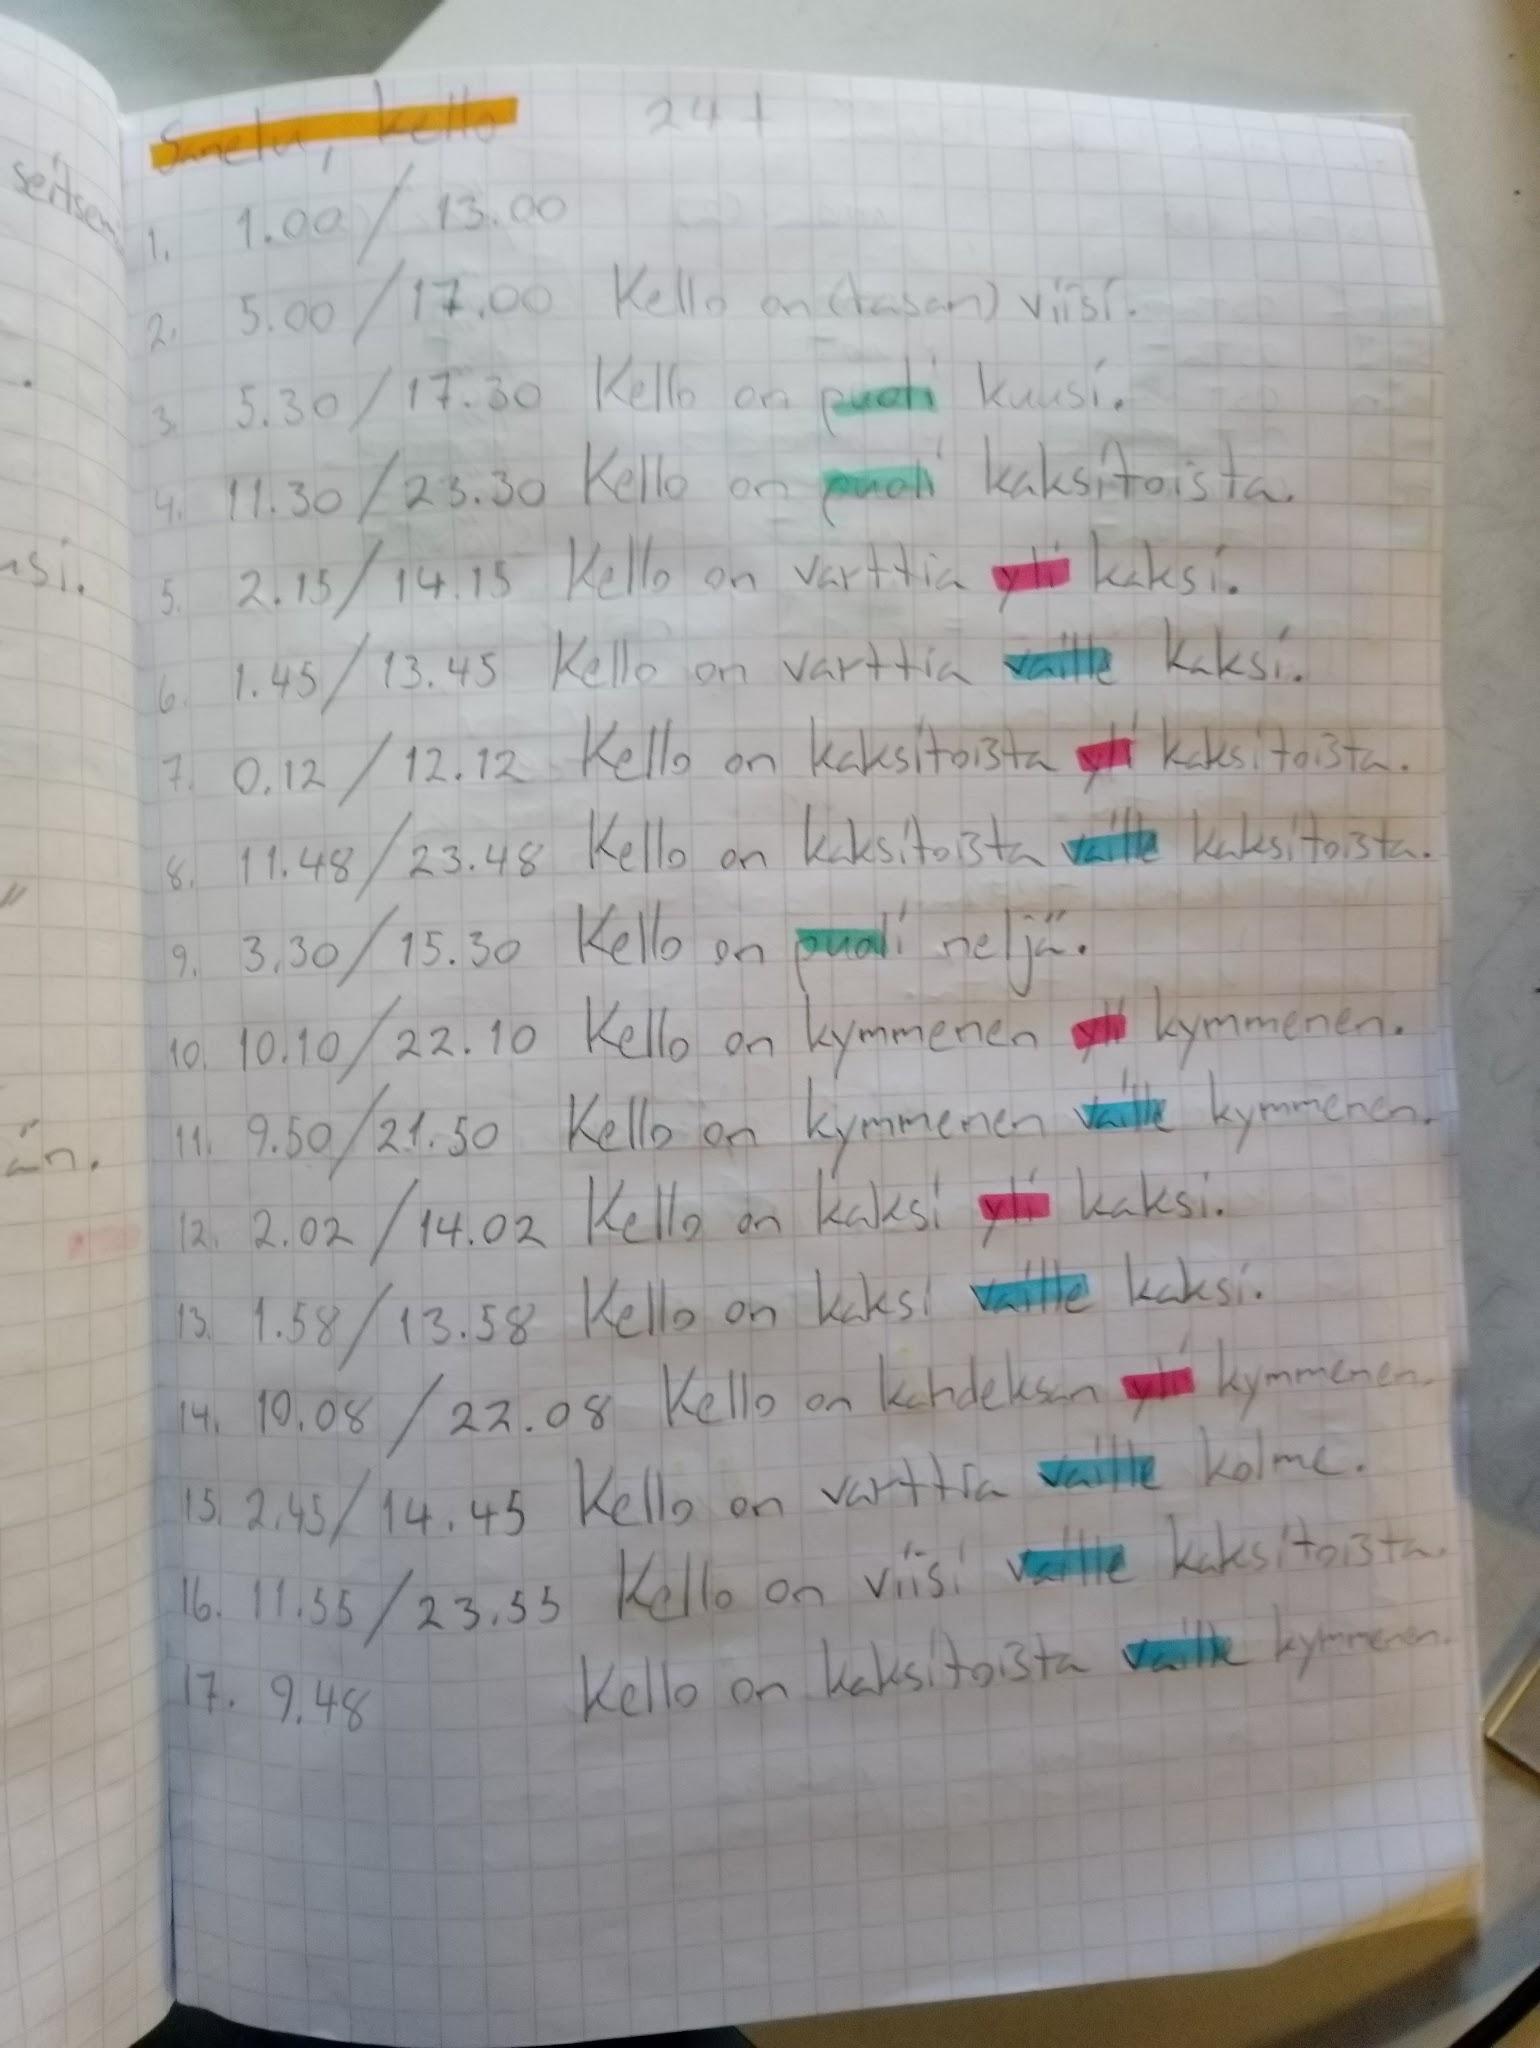 Sanelu, kello 24 t
1. 1.00 / 13.00
2. 5.00 / 17.00 Kello on (tasan) viisi.
3. 5.30 / 17.30 Kello on puoli kuusi.
4. 11.30 / 23.30 Kello on puoli kaksitoista.
5. 2.15 / 14.15 Kello on varttia yli kaksi.
6. 1.45 / 13.45 Kello on varttia vaille kaksi.
7. 0.12 / 12.12 Kello on kaksitoista yli kaksitoista.
8. 11.48 / 23.48 Kello on kaksitoista vaille kaksitoista.
9. 3.30 / 15.30 Kello on puoli neljä.
10. 10.10 / 22.10 Kello on kymmenen yli kymmenen.
11. 9.50 / 21.50 Kello on kymmenen vaille kymmenen.
12. 2.02 / 14.02 Kello on kaksi yli kaksi.
13. 1.58 / 13.58 Kello on kaksi vaille kaksi.
14. 10.08 / 22.08 Kello on kahdeksan yli kymmenen.
15. 2.45 / 14.45 Kello on varttia vaille kolme.
16. 11.55 / 23.55 Kello on viisi vaille kaksitoista.
17. 9.48 Kello on kaksitoista vaille kymmenen.